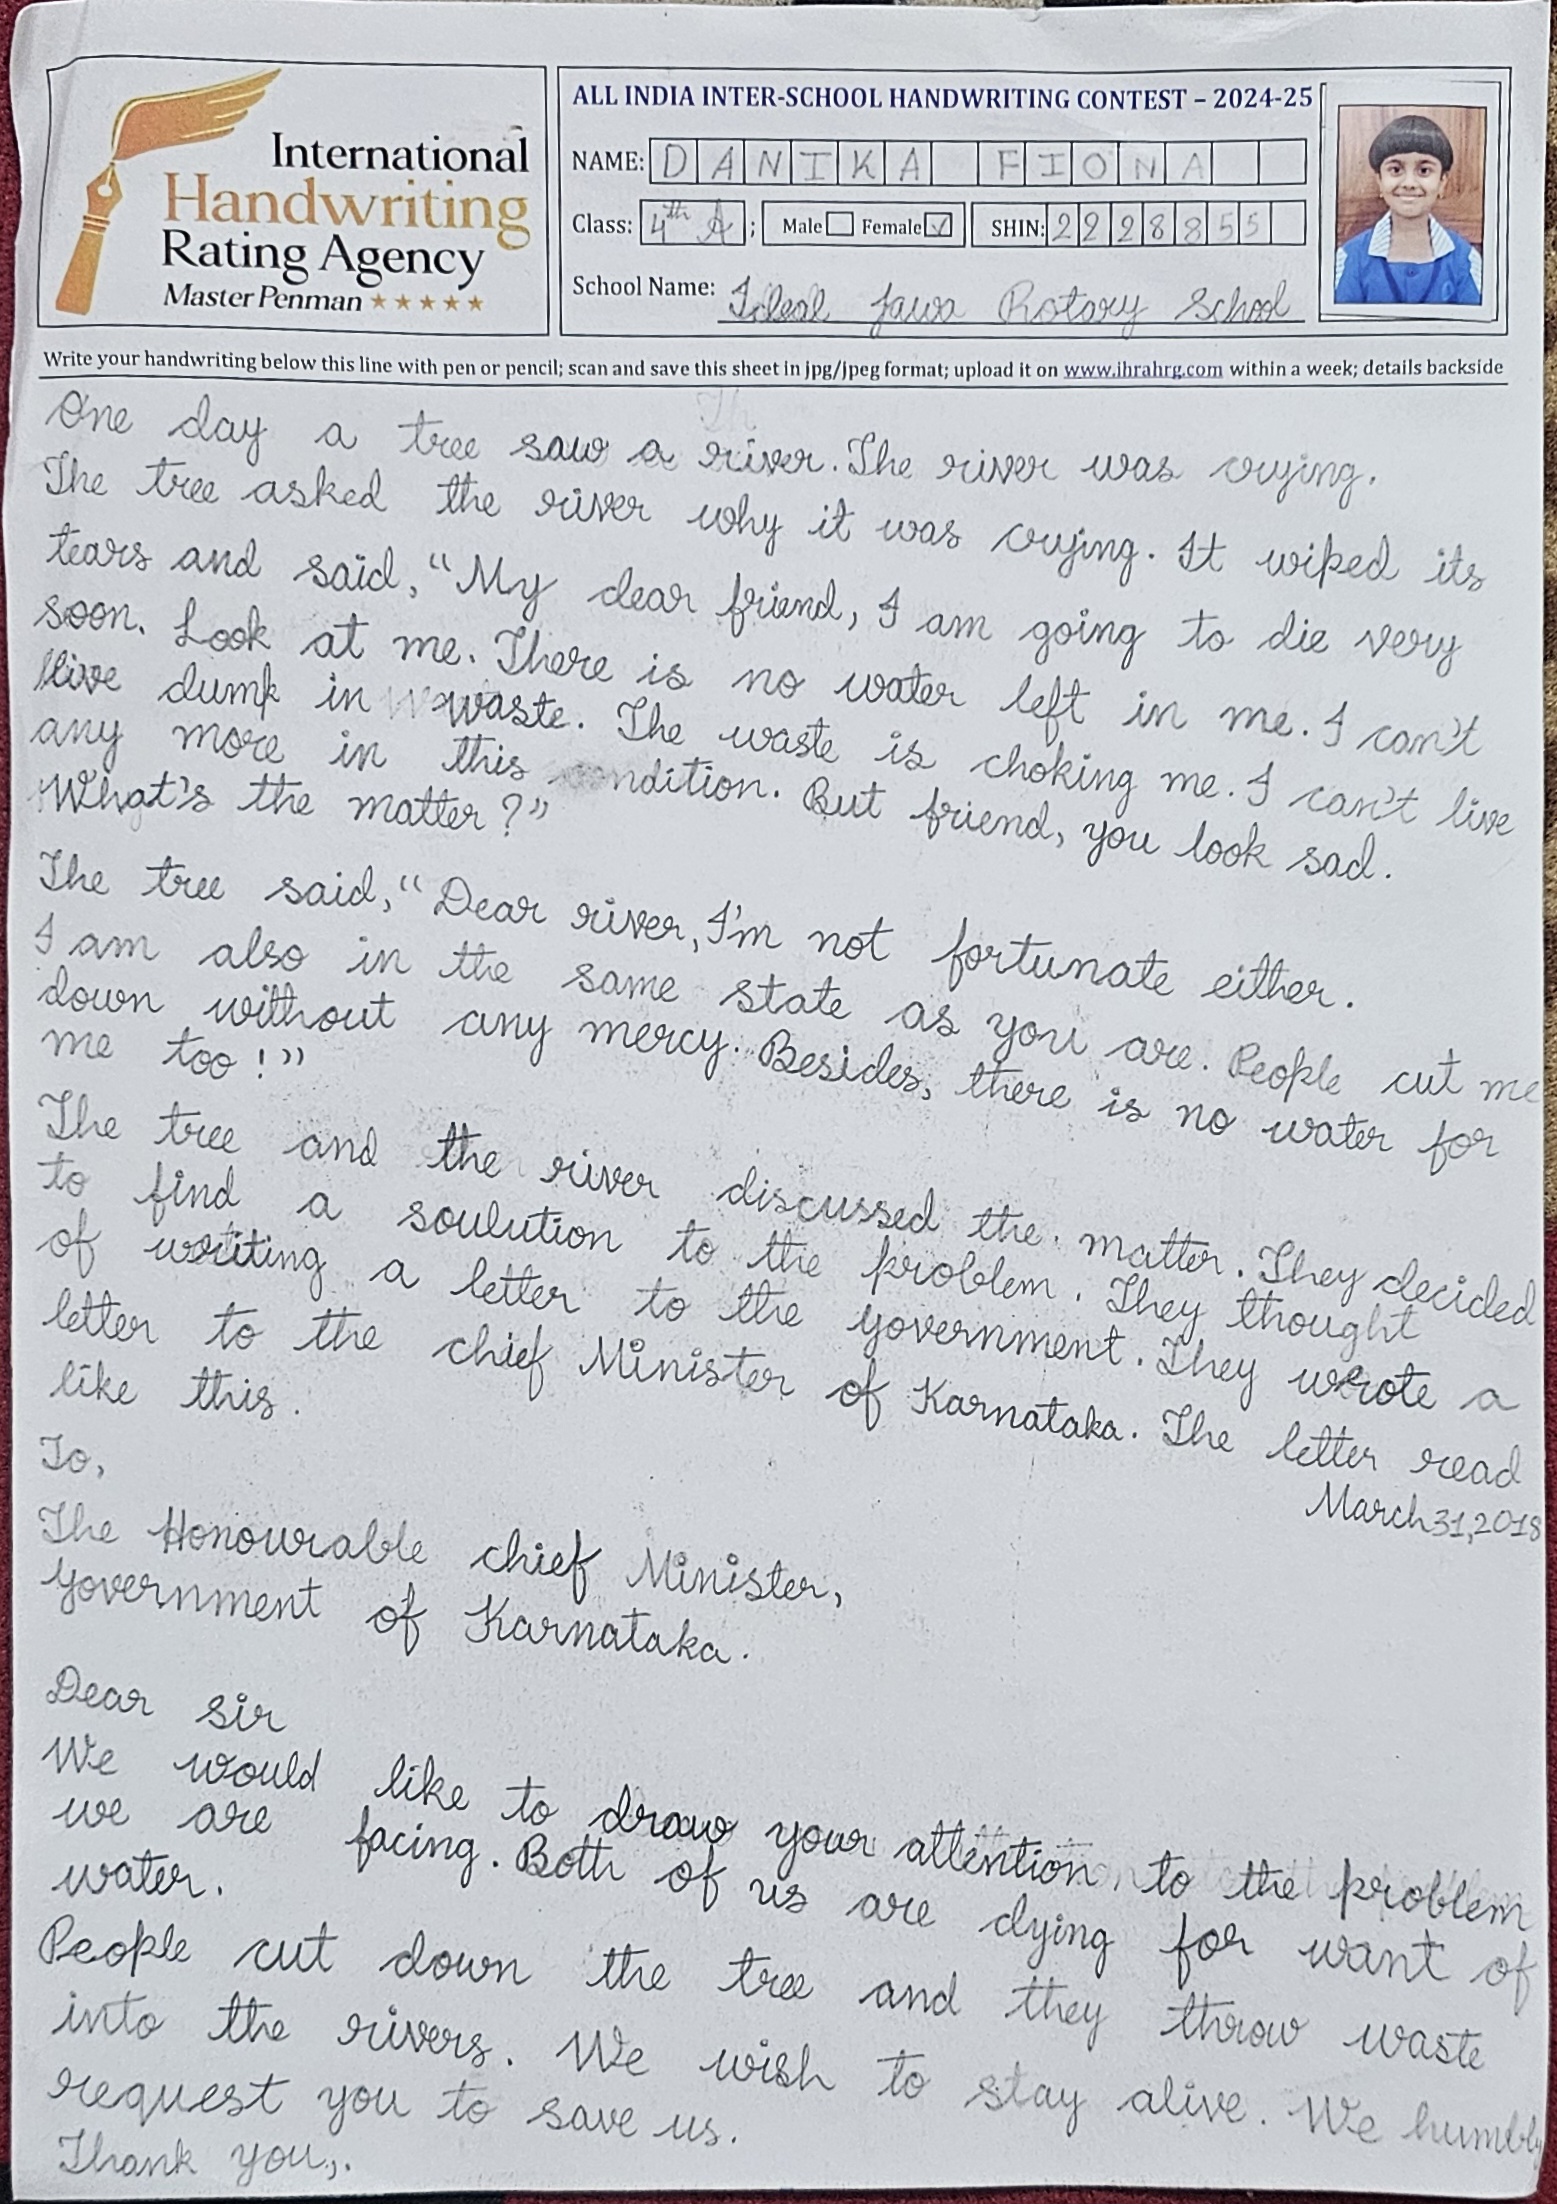 International
Handwriting
Rating Agency
Master Penman
ALL INDIA INTER-SCHOOL HANDWRITING CONTEST – 2024-25
NAME: DANIKA FIONA
Class: 4th A ; Male Female ✓ SHIN: 2228855
School Name: Ideal Jawa Rotary School
Write your handwriting below this line with pen or pencil; scan and save this sheet in jpg/jpeg format; upload it on www.ihrahrg.com within a week; details backside
One day a tree saw a river. The river was crying.
The tree asked the river why it was crying. It wiped its
tears and said, "My dear friend, I am going to die very
soon. Look at me. There is no water left in me. I can't
live dump in waste. The waste is choking me. I can't live
any more in this condition. But friend, you look sad.
What's the matter?"
The tree said, "Dear river, I'm not fortunate either.
I am also in the same state as you are. People cut me
down without any mercy. Besides, there is no water for
me too!"
The tree and the river discussed the matter. They decided
to find a soulution to the problem. They thought
of writing a letter to the government. They wrote a
letter to the chief Minister of Karnataka. The letter read
like this.
To,
March 31, 2018
The Honourable chief Minister,
government of Karnataka.
Dear sir
We would like to draw your attention to the problem
we are facing. Both of us are dying for want of
water.
People cut down the tree and they throw waste
into the rivers. We wish to stay alive. We humbly
request you to save us.
Thank you,.